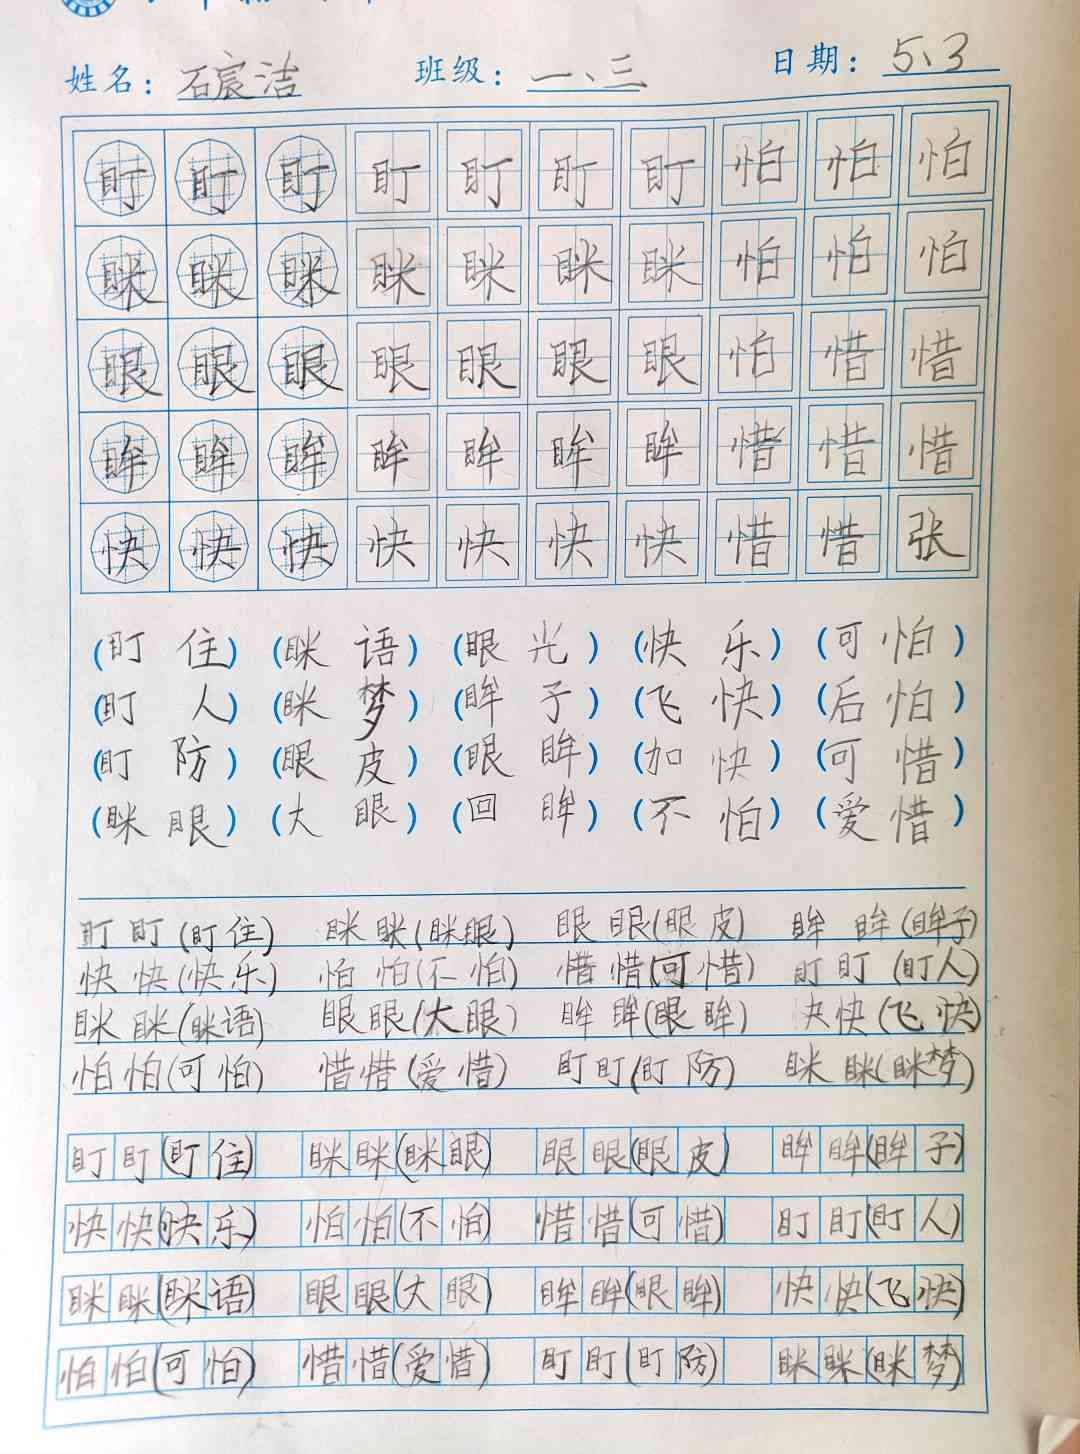 姓名：石宸洁 班级：一、三 日期：5、3
盯 盯 盯 盯 盯 盯 盯 怕 怕 怕
眯 眯 眯 眯 眯 眯 眯 怕 怕 怕
眼 眼 眼 眼 眼 眼 眼 怕 惜 惜
眸 眸 眸 眸 眸 眸 眸 惜 惜 惜
快 快 快 快 快 快 快 惜 惜 张
(盯住) (眯语) (眼光) (快乐) (可怕)
(盯人) (眯梦) (眸子) (飞快) (后怕)
(盯防) (眼皮) (眼眸) (加快) (可惜)
(眯眼) (大眼) (回眸) (不怕) (爱惜)
盯 盯 (盯住) 眯 眯 (眯眼) 眼 眼 (眼皮) 眸 眸 (眸子)
快 快 (快乐) 怕 怕 (不怕) 惜 惜 (可惜) 盯 盯 (盯人)
眯 眯 (眯语) 眼 眼 (大眼) 眸 眸 (眼眸) 夬 快 (飞快)
怕 怕 (可怕) 惜 惜 (爱惜) 盯 盯 (盯防) 眯 眯 (眯梦)
盯 盯 (盯住) 眯 眯 (眯眼) 眼 眼 (眼皮) 眸 眸 (眸子)
快 快 (快乐) 怕 怕 (不怕) 惜 惜 (可惜) 盯 盯 (盯人)
眯 眯 (眯语) 眼 眼 (大眼) 眸 眸 (眼眸) 快 快 (飞快)
怕 怕 (可怕) 惜 惜 (爱惜) 盯 盯 (盯防) 眯 眯 (眯梦)